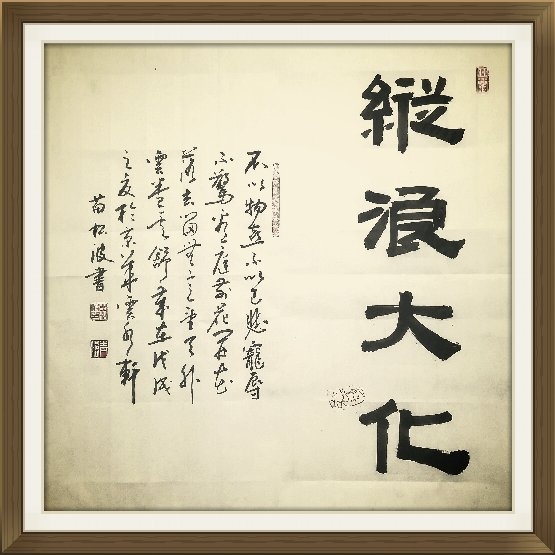 縱浪大化
不以物喜不以己悲寵辱
不驚看庭前花開花
落去留無意望天外
雲卷雲舒歲在戊戌
之夏於京華雲水軒
苗松波書